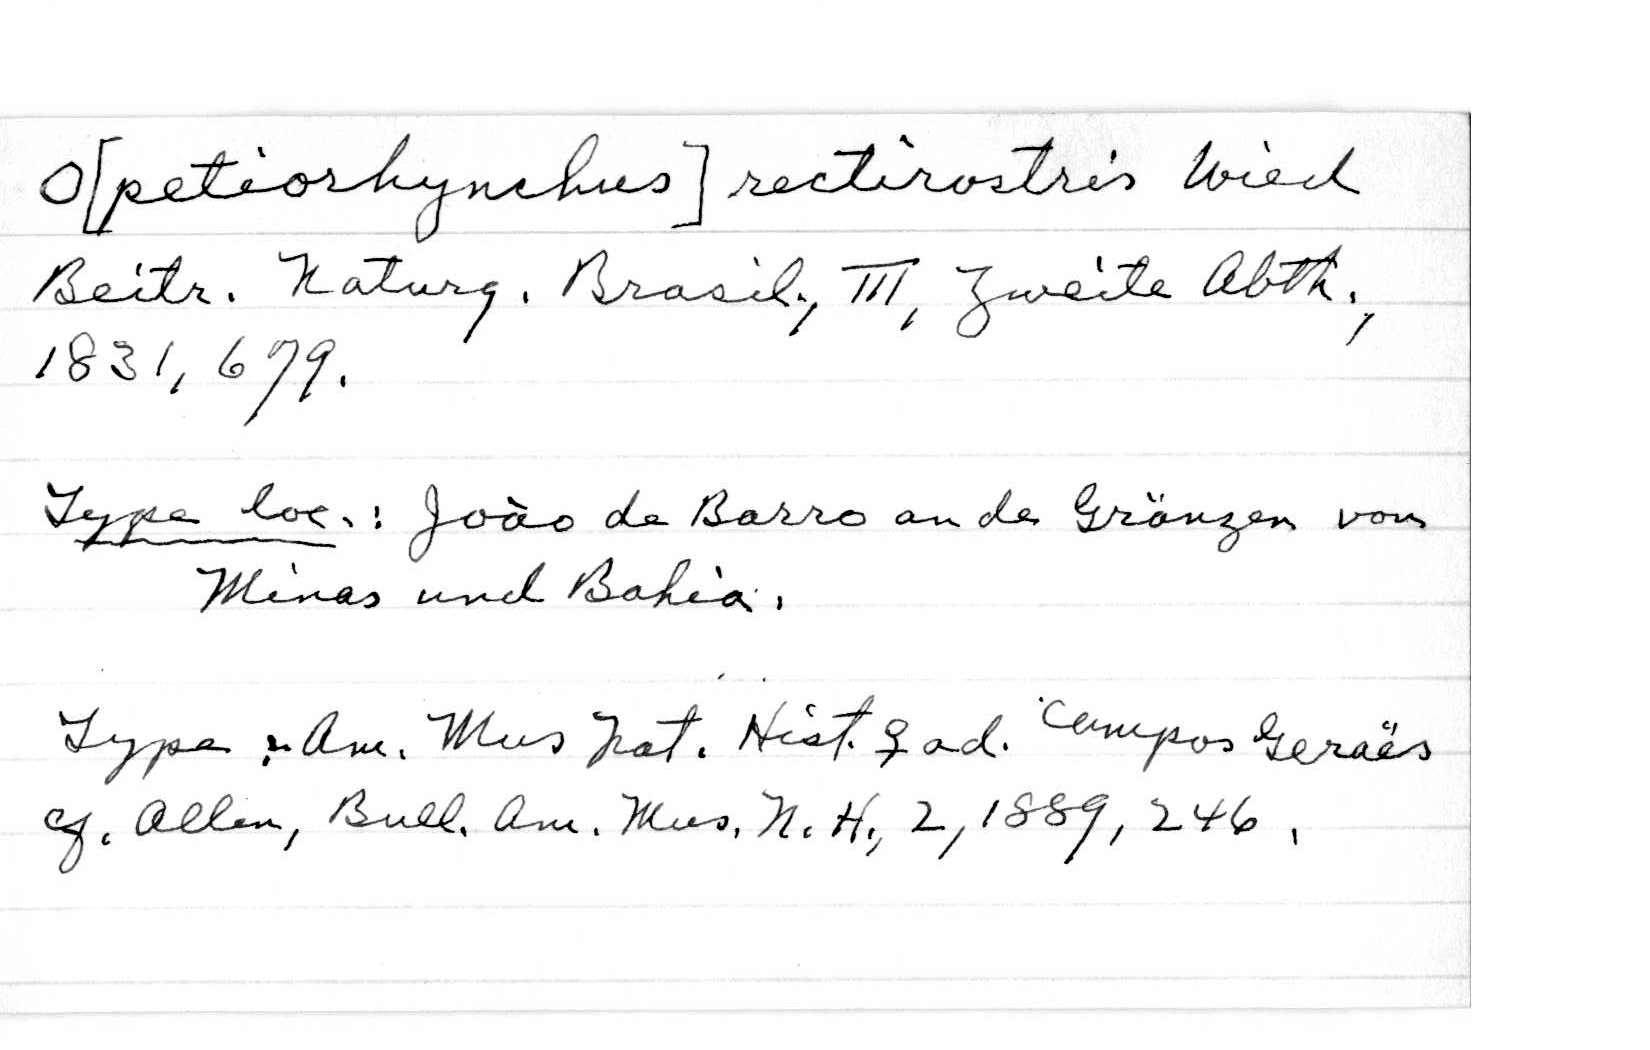 O[petiorhynchus] rectirostris Wied
Beitr. Naturg. Brasil., III, Zweite Abth.,
1831, 679.
Type loc.: Joào de Barro an de Gränzen von
Minas und Bahia.
Type : Am. Mus Nat. Hist. ♀ ad. "Campos Geraës
cf. Allen, Bull. Am. Mus. N. H., 2, 1889, 246.